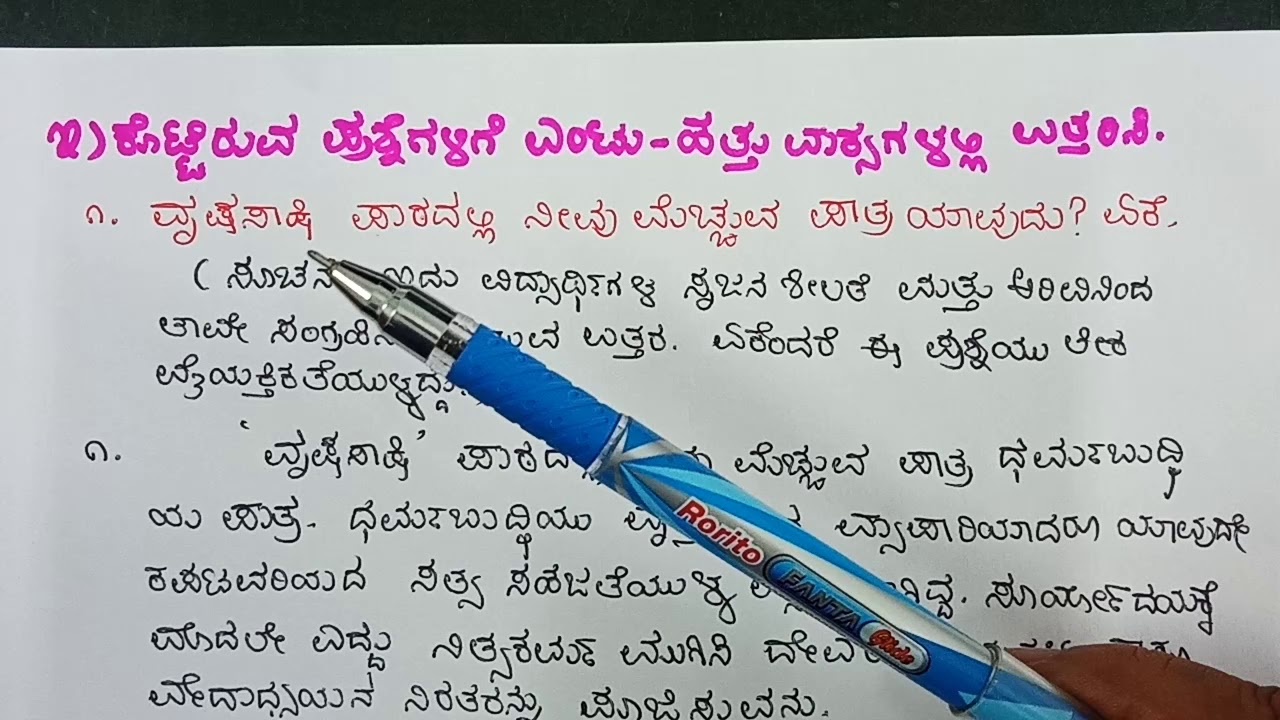 ಇ) ಕೊಟ್ಟಿರುವ ಪ್ರಶ್ನೆಗಳಿಗೆ ಎಂಟು-ಹತ್ತು ವಾಕ್ಯಗಳಲ್ಲಿ ಉತ್ತರಿಸಿ.
೧. ವೃಕ್ಷಸಾಕ್ಷಿ ಪಾಠದಲ್ಲಿ ನೀವು ಮೆಚ್ಚುವ ಪಾತ್ರ ಯಾವುದು? ಏಕೆ.
( ಸೂಚನೆ ಇದು ವಿದ್ಯಾರ್ಥಿಗಳ ಸೃಜನಶೀಲತೆ ಮತ್ತು ಅರಿವಿನಿಂದ
ತಾವೇ ಸಂಗ್ರಹಿಸಿ ಉತ್ತರ. ಏಕೆಂದರೆ ಈ ಪ್ರಶ್ನೆಯು ಬೇಕ
ವೈಯಕ್ತಿಕತೆಯುಳ್ಳದ್ದು.
೧. 'ವೃಕ್ಷಸಾಕ್ಷಿ' ಮೆಚ್ಚುವ ಪಾತ್ರ ಧರ್ಮಬುದ್ಧಿ
ಯ ಪಾತ್ರ. ಧರ್ಮಬುದ್ಧಿಯು ವ್ಯಾಪಾರಿಯಾದರೂ ಯಾವುದೇ
ಕಪಟವರಿಯದ ಸತ್ಯ ಸಹಜತೆಯುಳ್ಳ ಸೂರ್ಯೋದಯಕ್ಕೆ
ಮೊದಲೇ ಎದ್ದು ನಿತ್ಯಕರ್ಮ ಮುಗಿಸಿ
ವೇದಾಧ್ಯಯನ ನಿರತರನ್ನು ಪೂಜಿಸುವನು.
Rorito
FANTA
Glide